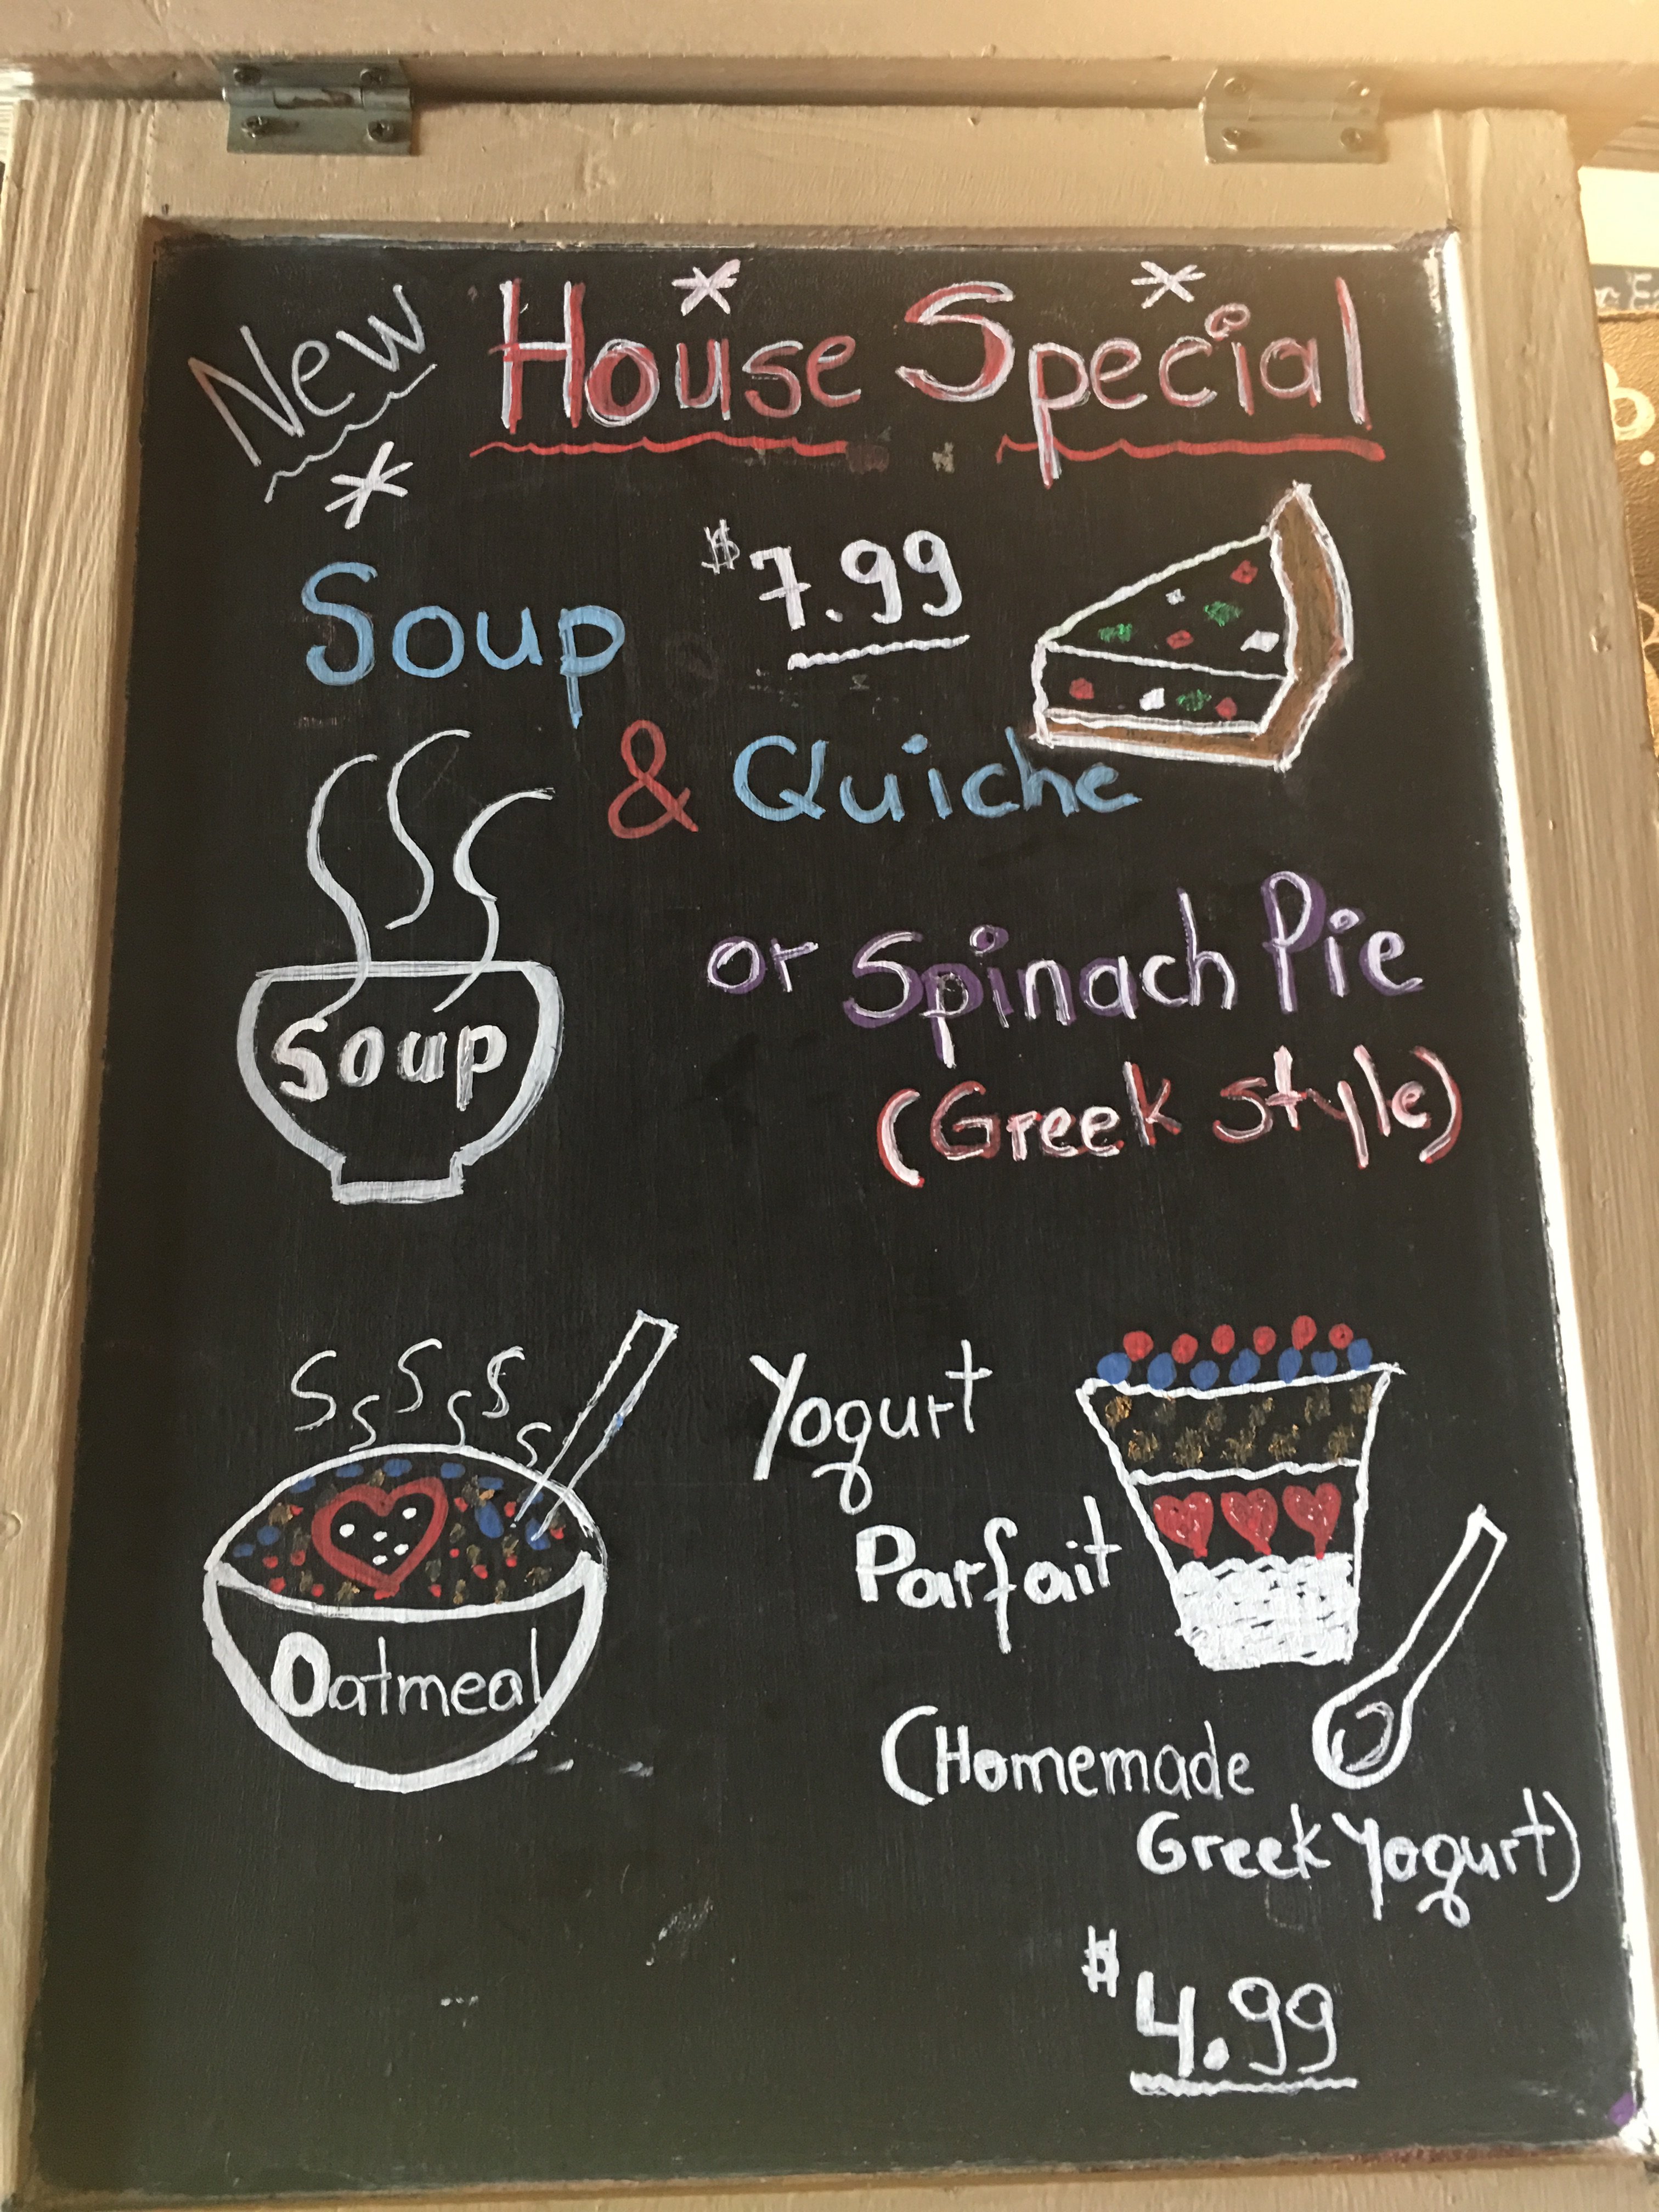 New House Special
Soup $7.99
& Quiche
or Spinach Pie
(Greek style)
Soup
Oatmeal
Yogurt
Parfait
(Homemade
Greek Yogurt)
$4.99